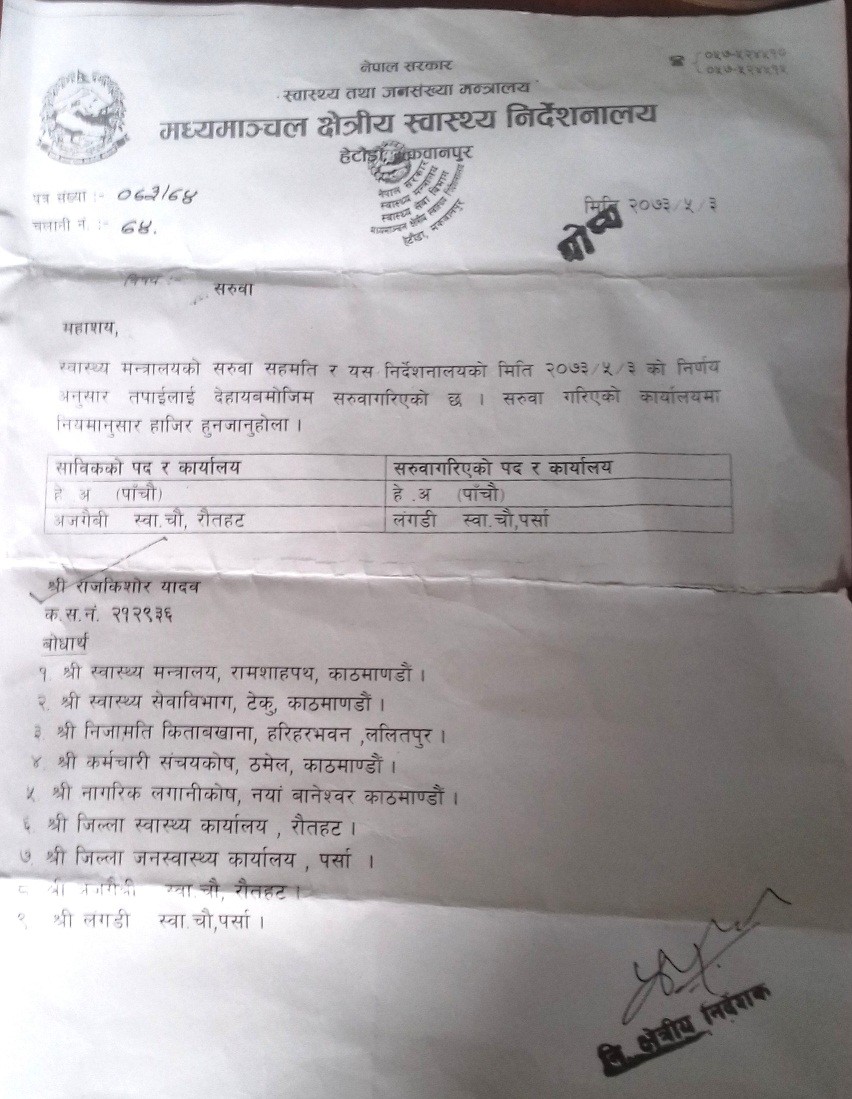 नेपाल सरकार
०५७-५२४५१०
०५७-५२४४१५
स्वास्थ्य तथा जनसंख्या मन्त्रालय
मध्यमाञ्चल क्षेत्रीय स्वास्थ्य निर्देशनालय
हेटौडा, मकवानपुर
नेपाल सरकार
स्वास्थ्य मन्त्रालय
स्वास्थ्य सेवा विभाग
मध्यमाञ्चल क्षेत्रीय स्वास्थ्य निर्देशनालय
हेटौंडा, मकवानपुर
पत्र संख्या :- ०६३/६४
मिति २०७३/५/३
चलानी नं. :- 64.
विषय :-
सरुवा
महाशय,
स्वास्थ्य मन्त्रालयको सरुवा सहमति र यस निर्देशनालयको मिति २०७३/५/३ को निर्णय
अनुसार तपाईलाई देहायबमोजिम सरुवागरिएको छ । सरुवा गरिएको कार्यालयमा
नियमानुसार हाजिर हुनजानुहोला ।
साविकको पद र कार्यालय सरुवागरिएको पद र कार्यालय
हे. अ (पाँचौ) हे .अ (पाँचौ)
अजगैबी स्वा.चौ, रौतहट लंगडी स्वा.चौ,पर्सा
श्री राजकिशोर यादव
क.स.नं. २१२९३६
बोधार्थ
१. श्री स्वास्थ्य मन्त्रालय, रामशाहपथ, काठमाण्डौं ।
२. श्री स्वास्थ्य सेवाविभाग, टेकु, काठमाण्डौं ।
३. श्री निजामति किताबखाना, हरिहरभवन ,ललितपुर ।
४. श्री कर्मचारी संचयकोष, ठमेल, काठमाण्डौं ।
५. श्री नागरिक लगानीकोष, नयां बानेश्वर काठमाण्डौं ।
६. श्री जिल्ला स्वास्थ्य कार्यालय , रौतहट ।
७. श्री जिल्ला जनस्वास्थ्य कार्यालय , पर्सा ।
८. श्री अजगैबी स्वा.चौ, रौतहट ।
९. श्री लंगडी स्वा.चौ,पर्सा ।
नि. क्षेत्रीय निर्देशक